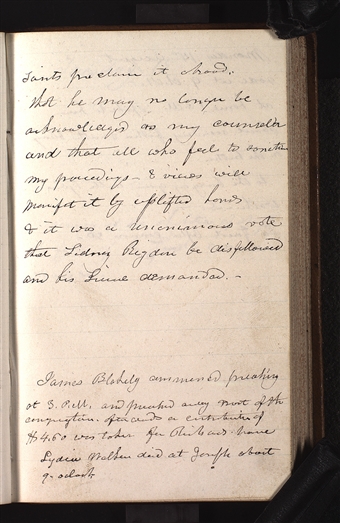 saints proclaim it abroad.
that he may no longer be
acknowledged as my counselor
and that all who feel to sanction
my proceedings & views will
manifest it by uplifted hands
& it was a unanimous vote
that Sidney Rigdon be disfellowed
and his License demanded. -
James Blakely commenced preaching
at 3. P.M. and preached away most of the
congregation. afterwards a contribution of
$4.60 was taken for Richard's
Lydia Walker died at Joseph about
9. oclock